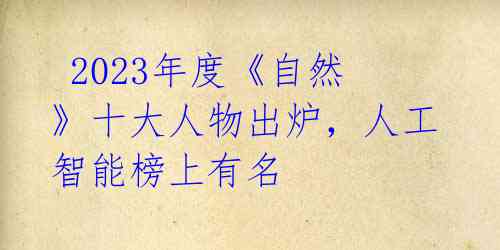 2023年度《自然
》十大人物出炉，人工
智能榜上有名